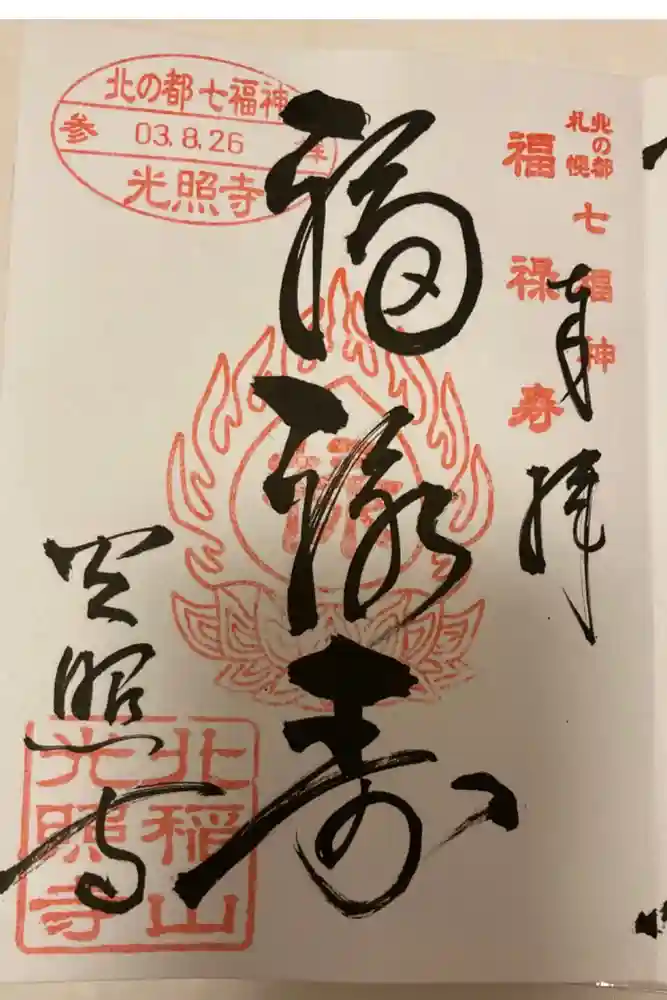 北の都
札幌
七福神
福禄寿
奉拝
福禄寿
北の都七福神
参 03.8.26 拝
光照寺
光照寺
北稲山
光照寺